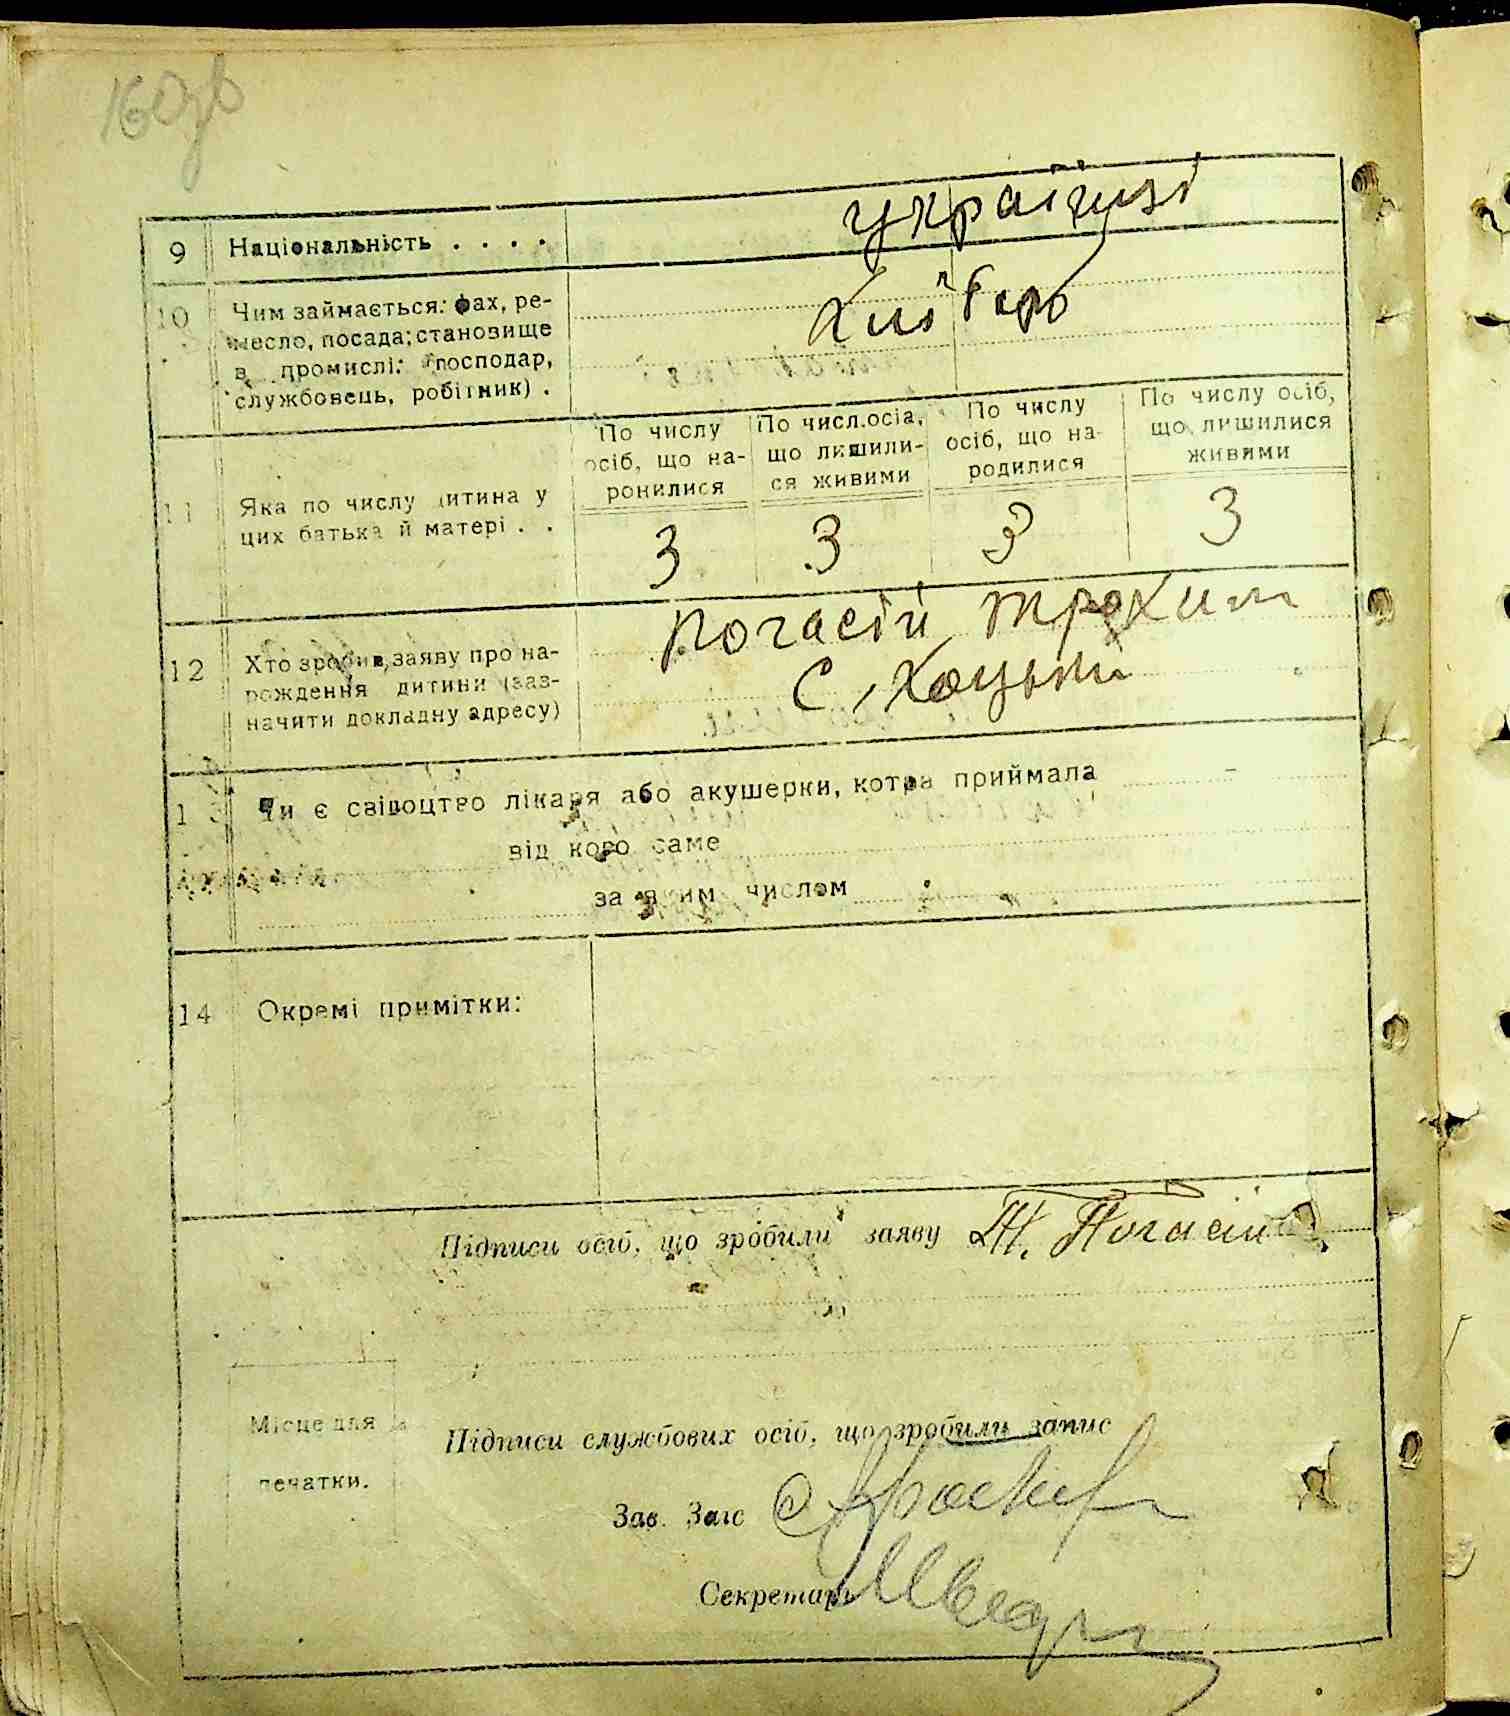 160зв
9 Національність . . . . українці
10 Чим займається: фах, ре-
месло, посада; становище
в промислі: господар,
службовець, робітник) .
хлібороб
По числу
осіб, що на-
ронилися
По числ.осіа,
що лишили-
ся живими
По числу
осіб, що на-
родилися
По числу осіб,
що лишилися
живими
11 Яка по числу дитина у
цих батька й матері . .
3 3 3 3
12 Хто зробив заяву про на-
рождення дитини (заз-
начити докладну адресу)
Погасій Трохим
с. Хоцьки
13 Чи є свідоцтво лікаря або акушерки, котра приймала -
від кого саме
за яким числом
14 Окремі примітки:
Підписи осіб, що зробили заяву Т. Погасій
Місце для
печатки.
Підписи службових осіб, що зробили запис
Зав. Загс
Секретарь